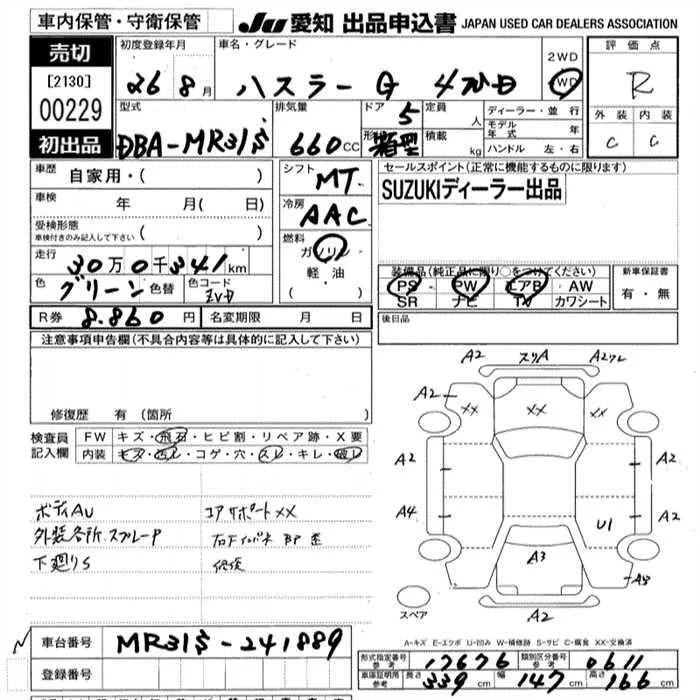 車内保管・守衛保管
JU 愛知 出品申込書 JAPAN USED CAR DEALERS ASSOCIATION
売切
[2130]
00229
初出品
初度登録年月
26 8 月
車名・グレード
ハスラー G 4WD
2WD
4WD
評価点
R
外装 内装
C C
型式
DBA-MR31S
排気量
660 CC
ドア 5
形状 箱型
定員 人
積載 kg
ディーラー・並行
モデル年式 年
ハンドル 左・右
車歴 自家用・( )
車検 年 月( 日)
受検形態
車検付きのみ記入して下さい ( )
走行
30万0千341km
色 グリーン 色替 色コード ZVD
R券 8.860 円 名変期限 月 日
シフト
MT
冷房
AAC
燃料
ガソリン
軽・油
( ・ )
セールスポイント(正常に機能するものに限ります)
SUZUKIディーラー出品
装備品(純正品に限り○をつけてください)
PS PW エアB AW
SR ナビ TV カワシート
新車保証書
有・無
後日品
注意事項申告欄(不具合内容等は具体的に記入して下さい)
修復歴 有 (箇所
検査員記入欄
FW キズ・飛石・ヒビ割・リペア跡・X要
内装 キズ・汚レ・コゲ・穴・スレ・キレ・破レ
ボディAU
外装各所スプレーP
下廻りS
コアサポートXX
修復
A2 A2
A2 XX XX XX
A2 A2
A4 U1 A2
A3
A2
スペア
A-キズ E-エクボ U-凹み W-補修跡 S-サビ C-腐食 XX-交換済
車台番号 MR31S-241889
登録番号
形式指定番号 参考 17676 類別区分番号 参考 0611
車庫証明用 参考 長さ 339 cm 幅 147 cm 高さ 166 cm